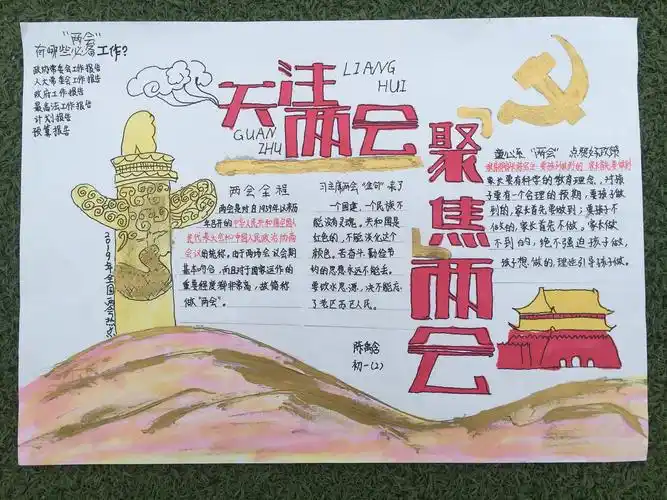 "两会"
有哪些必备工作?
政协常委会工作报告
人大常委会工作报告
政府工作报告
最高法工作报告
计划报告
预算报告
关注两会
LIANG
HUI
GUAN
ZHU
「聚焦两会」
2019年全国两会
两会全程
两会是对自1959年以来历
年召开的中华人民共和国全国人
民代表大会和中国人民政治协商
会议的统称,由于两场会议会期
基本吻合,而且对于国家运作的
重要程度都非常高,故简称
做"两会"。
习主席两会"金句"来了
一个国家,一个民族不
能没有灵魂。共和国是
红色的,不能淡化这个
颜色。艰苦奋斗,勤俭节
约的思想永远不能丢。
要饮水思源,决不能忘
了老区苏区人民。
童心系"两会" 点赞好政策
要孩子做到的,家长首先要做到
家长要有科学的教育理念,对孩
子要有一个合理的预期,要孩子做
到的,家长首先要做到;要孩子不
做的,家长首先不做。家长做
不到的,绝不强迫孩子做,
孩子想做的,理性引导孩子做。
陈禹含
初一(2)